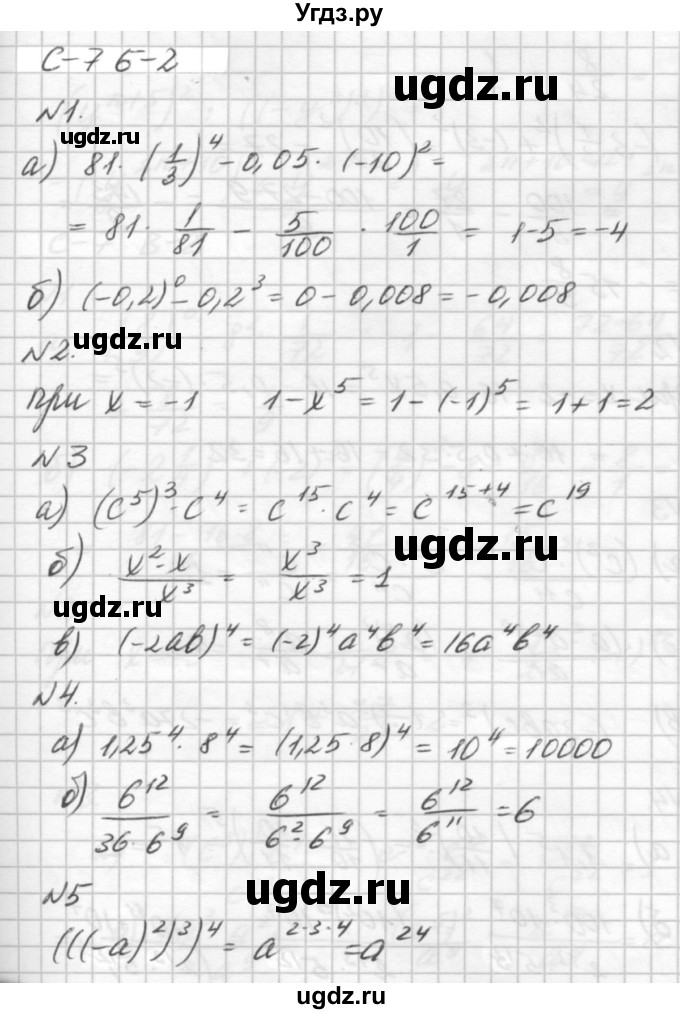 Угдз.ру
С-7 Б-2
ugdz.ru
№1.
ugdz.ru
а) 81·(1/3)^4 - 0,05·(-10)^2 =
= 81·1/81 - 5/100·100/1 = 1-5 = -4
б) (-0,2)^0 - 0,2^3 = 0 - 0,008 = -0,008
№2.
ugdz.ru
при x = -1 1-x^5 = 1-(-1)^5 = 1+1=2
№3
а) (c^5)^3·c^4 = c^15·c^4 = c^15+4 = c^19
ugdz.ru
б) x^2·x/x^3 = x^3/x^3 = 1
ugdz.ru
в) (-2ab)^4 = (-2)^4a^4b^4 = 16a^4b^4
№4.
а) 1,25^4·8^4 = (1,25·8)^4 = 10^4 = 10000
б) 6^12/36·6^9 = 6^12/6^2·6^9 = 6^12/6^11 = 6
ugdz.ru
№5
(((-a)^2)^3)^4 = a^2·3·4 = a^24
ugdz.ru
ugdz.ru